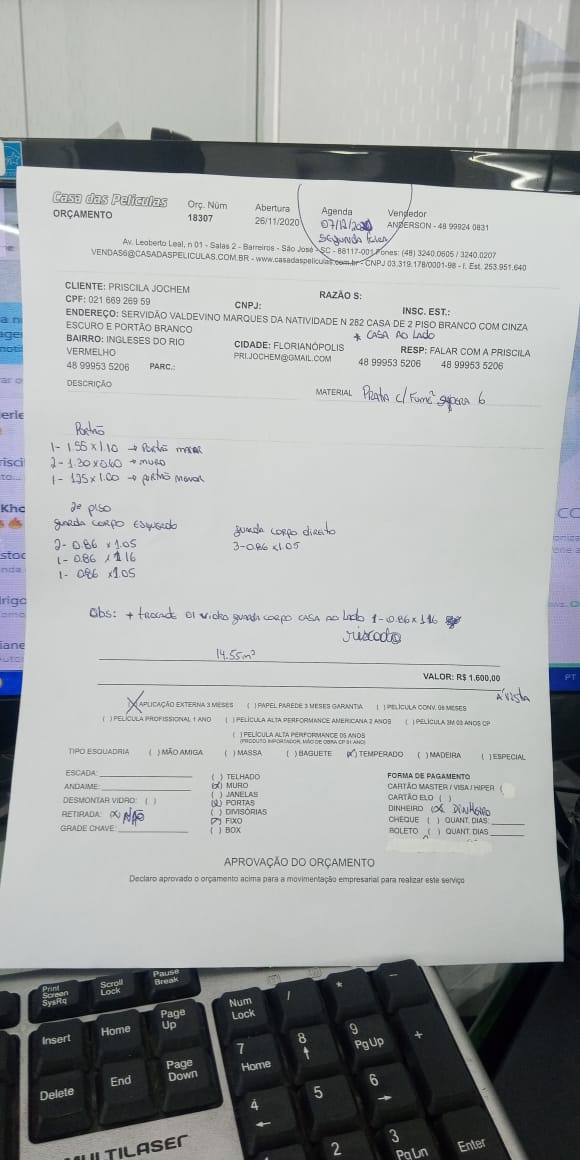 Casa das Películas
ORÇAMENTO
Orç. Núm
18307
Abertura
26/11/2020
Agenda
07/12/2020
Segunda feira
Vendedor
ANDERSON - 48 99924 0831
Av. Leoberto Leal, n 01 - Salas 2 - Barreiros - São José - SC - 88117-001 Fones: (48) 3240.0605 / 3240.0207
VENDAS6@CASADASPELICULAS.COM.BR - www.casadaspeliculas.com.br - CNPJ 03.319.178/0001-98 - I. Est. 253.951.640
CLIENTE: PRISCILA JOCHEM
RAZÃO S:
CPF: 021 669 269 59
CNPJ:
INSC. EST.:
ENDEREÇO: SERVIDÃO VALDEVINO MARQUES DA NATIVIDADE N 282 CASA DE 2 PISO BRANCO COM CINZA
ESCURO E PORTÃO BRANCO
* CASA AO LADO
BAIRRO: INGLESES DO RIO
VERMELHO
CIDADE: FLORIANÓPOLIS
RESP: FALAR COM A PRISCILA
PRI.JOCHEM@GMAIL.COM
48 99953 5206
48 99953 5206
48 99953 5206
PARC.:
DESCRIÇÃO
MATERIAL PRATA c/ Fumê 6
Portão
1- 1.55 x 1.10 → Portão maior
2- 1.30 x 0.60 → MURO
1- 1.25 x 1.00 → portão menor
2º piso
guarda corpo esquerdo
2- 0.86 x 1.05
1- 0.86 x 1.16
1- 0.86 x 1.05
guarda corpo direito
3- 0.86 x 1.05
Obs: + 01 vidro guarda corpo CASA AO LADO 1- 0.86 x 1.16
riscado
14.55m²
VALOR: R$ 1.600,00
A'Vista
(X) APLICAÇÃO EXTERNA 3 MESES ( ) PAPEL PAREDE 3 MESES GARANTIA ( ) PELÍCULA CONV. 06 MESES
( ) PELÍCULA PROFISSIONAL 1 ANO ( ) PELÍCULA ALTA PERFORMANCE AMERICANA 2 ANOS ( ) PELÍCULA 3M 03 ANOS CP
( ) PELÍCULA ALTA PERFORMANCE 05 ANOS
(PRODUTO IMPORTADOR, MÃO DE OBRA CP 01 ANO)
TIPO ESQUADRIA ( ) MÃO AMIGA ( ) MASSA ( ) BAGUETE (X) TEMPERADO ( ) MADEIRA ( ) ESPECIAL
ESCADA:
ANDAIME:
DESMONTAR VIDRO: ( )
RETIRADA: (X) NÃO
GRADE CHAVE:
( ) TELHADO
(X) MURO
( ) JANELAS
(X) PORTAS
( ) DIVISÓRIAS
(X) FIXO
( ) BOX
FORMA DE PAGAMENTO
CARTÃO MASTER / VISA / HIPER (
CARTÃO ELO ( )
DINHEIRO (X) DINHEIRO
CHEQUE ( ) QUANT. DIAS:
BOLETO ( ) QUANT. DIAS
APROVAÇÃO DO ORÇAMENTO
Declaro aprovado o orçamento acima para a movimentação empresarial para realizar este serviço
PT
Print Screen SysRq
Scroll Lock
Pause Break
Insert
Home
Page Up
Num Lock
/
*
-
Delete
End
Page Down
7 Home
8
9 PgUp
+
4
5
6
2
3 PgDn
Enter
MULTILASER